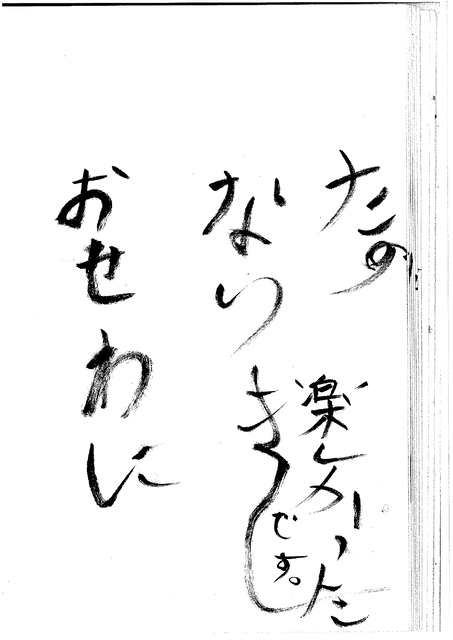 おせわに
なりまし
たの
楽しかった
です。